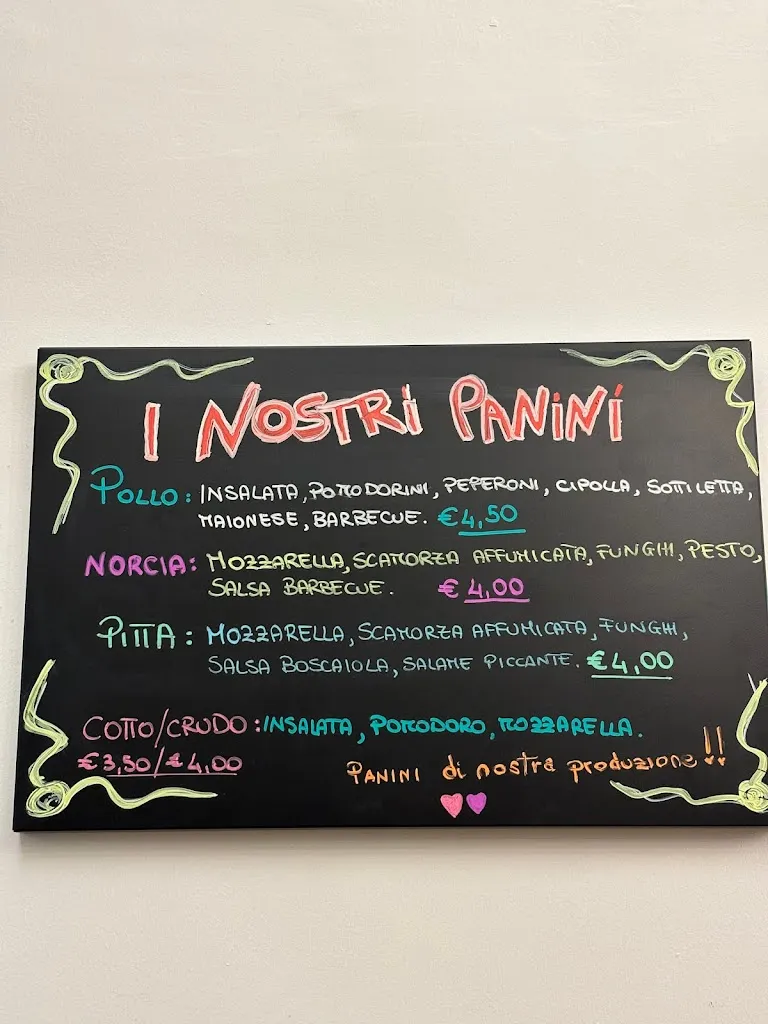 I NOSTRI PANINI
POLLO: INSALATA, POMODORINI, PEPERONI, CIPOLLA, SOTTILETTA,
MAIONESE, BARBECUE. €4,50
NORCIA: MOZZARELLA, SCAMORZA AFFUMICATA, FUNGHI, PESTO,
SALSA BARBECUE. € 4,00
PITTA: MOZZARELLA, SCAMORZA AFFUMICATA, FUNGHI,
SALSA BOSCAIOLA, SALAME PICCANTE. €4,00
COTTO/CRUDO: INSALATA, POMODORO, MOZZARELLA.
€3,50/€4,00
PANINI di nostra produzione!!